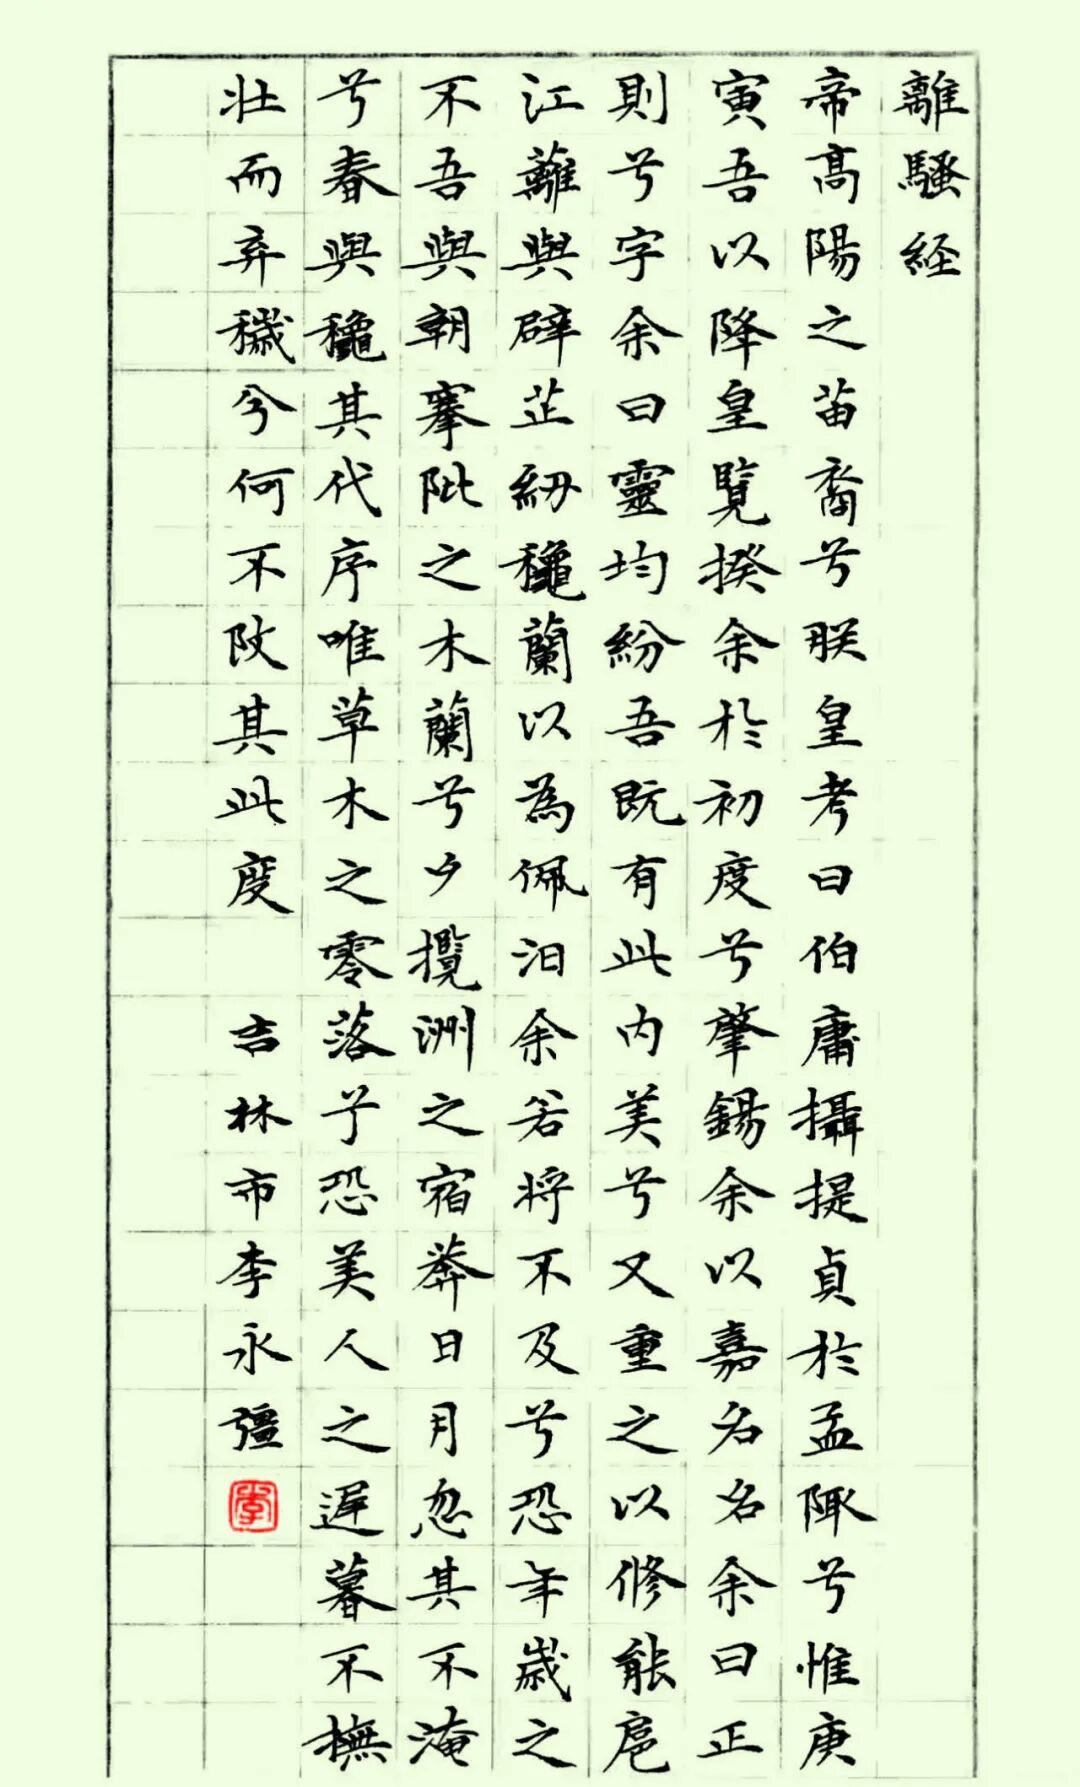 離騷経
帝高陽之苗裔兮朕皇考曰伯庸攝提貞於孟陬兮惟庚
寅吾以降皇覽揆余於初度兮肇錫余以嘉名名余曰正
則兮字余曰靈均紛吾既有此内美兮又重之以修能扈
江蘺與辟芷紉龝蘭以為佩汩余若将不及兮恐年歲之
不吾與朝搴阰之木蘭兮夕攬洲之宿莽日月忽其不淹
兮春與龝其代序唯草木之零落兮恐美人之遲暮不撫
壯而弃穢兮何不改其此度 吉林市李永彊
李